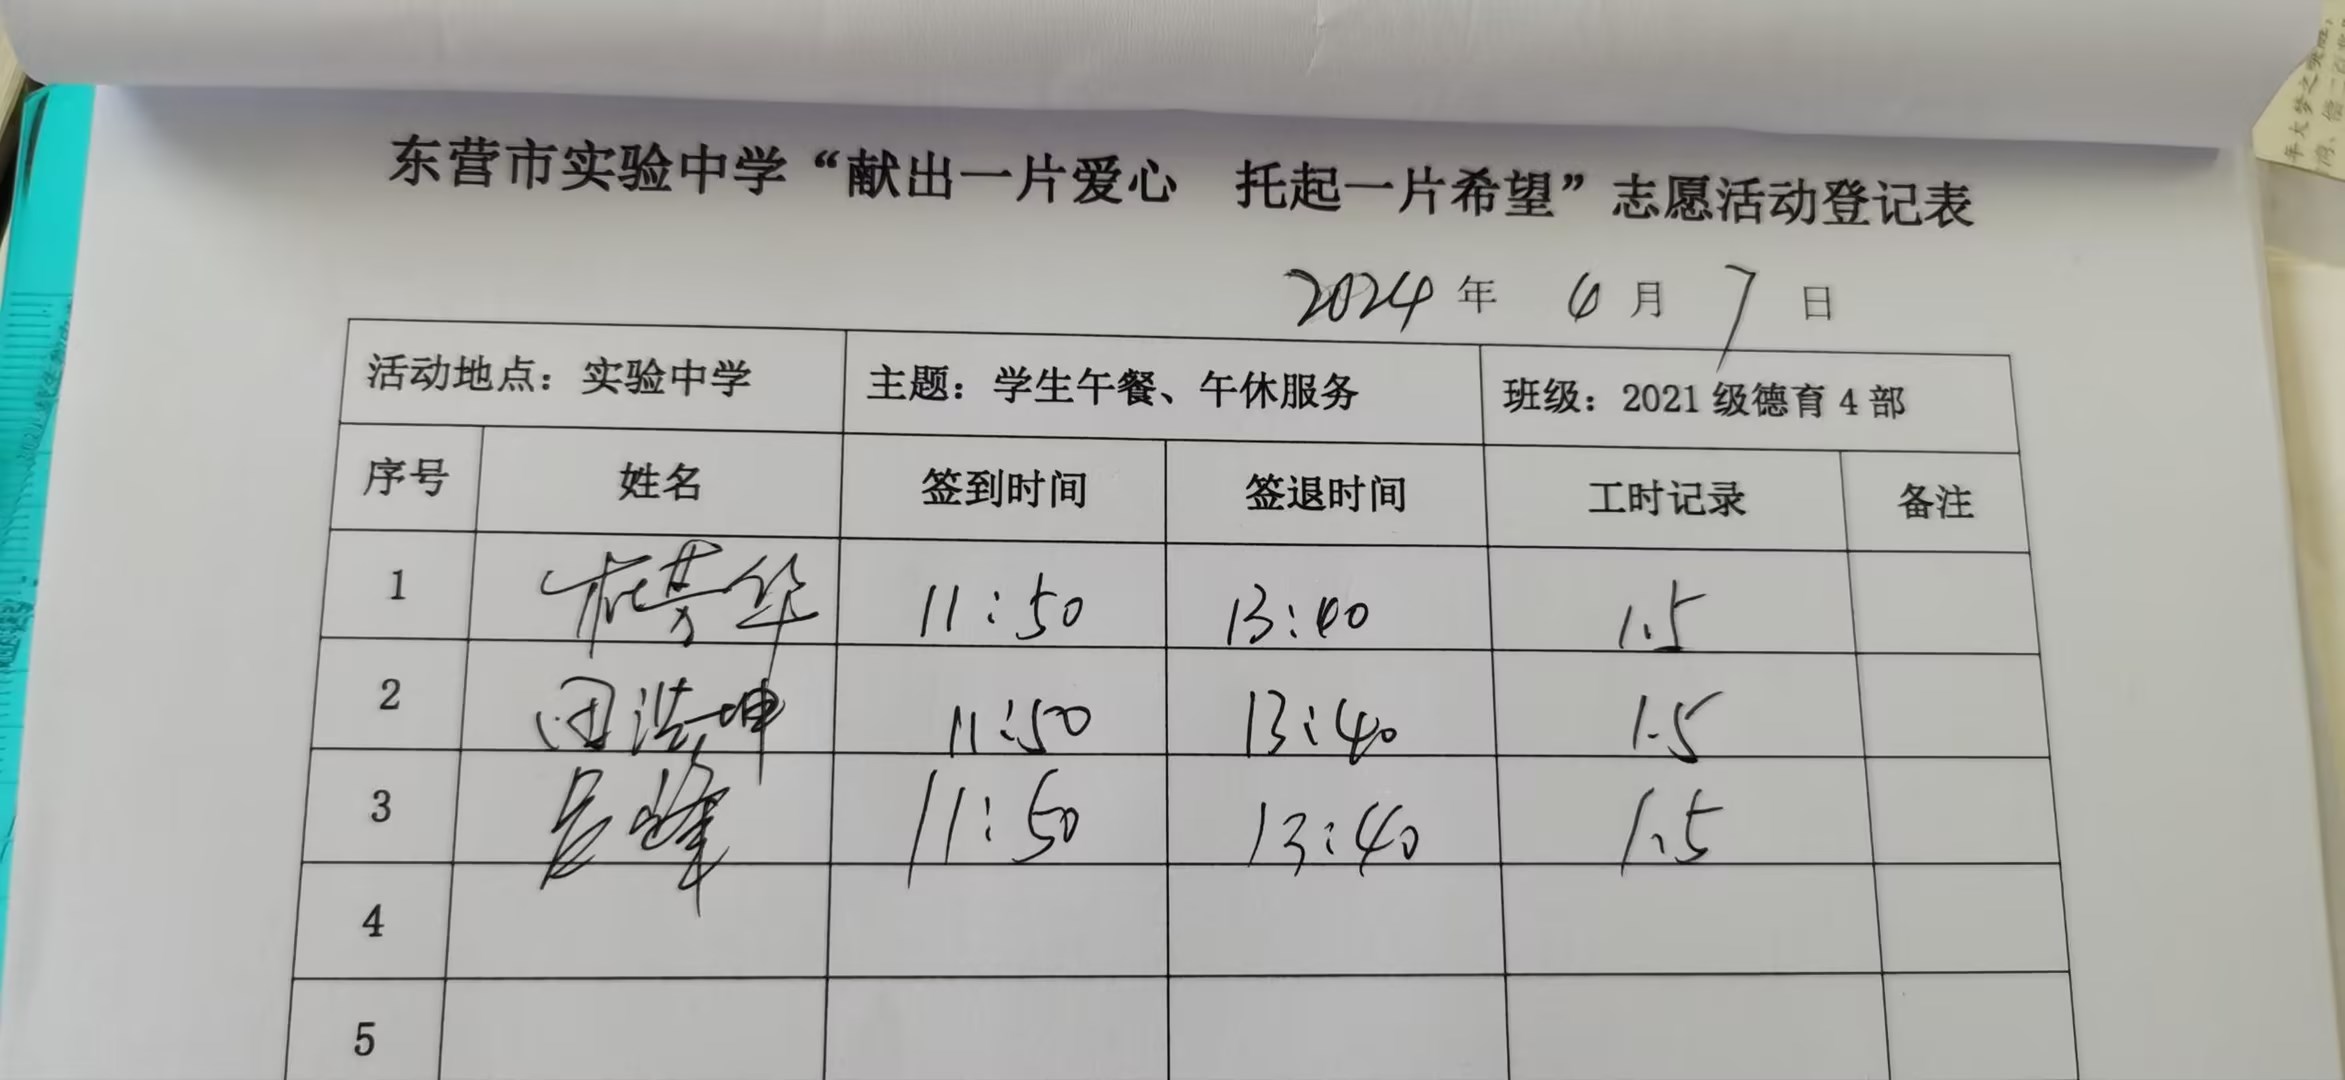 东营市实验中学“献出一片爱心 托起一片希望”志愿活动登记表
2024 年 6 月 7 日
活动地点：实验中学 主题：学生午餐、午休服务 班级：2021 级德育 4 部
序号 姓名 签到时间 签退时间 工时记录 备注
1 芳华 11:50 13:40 1.5
2 田浩坤 11:50 13:40 1.5
3 峰 11:50 13:40 1.5
4
5